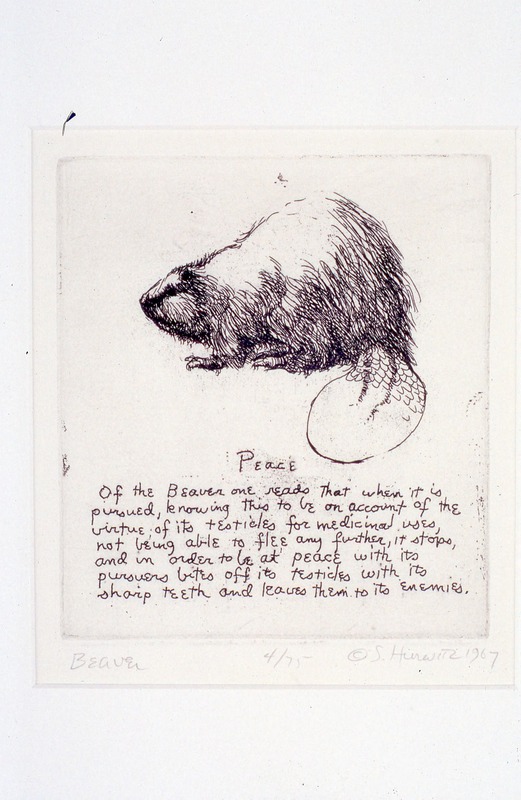 Peace
Of the Beaver one reads that when it is
pursued, knowing this to be on account of the
virtue of its testicles for medicinal uses,
not being able to flee any further, it stops,
and in order to be at peace with its
pursuers bites off its testicles with its
sharp teeth and leaves them to its enemies.
Beaver 4/75 © S. Hurwitz 1967